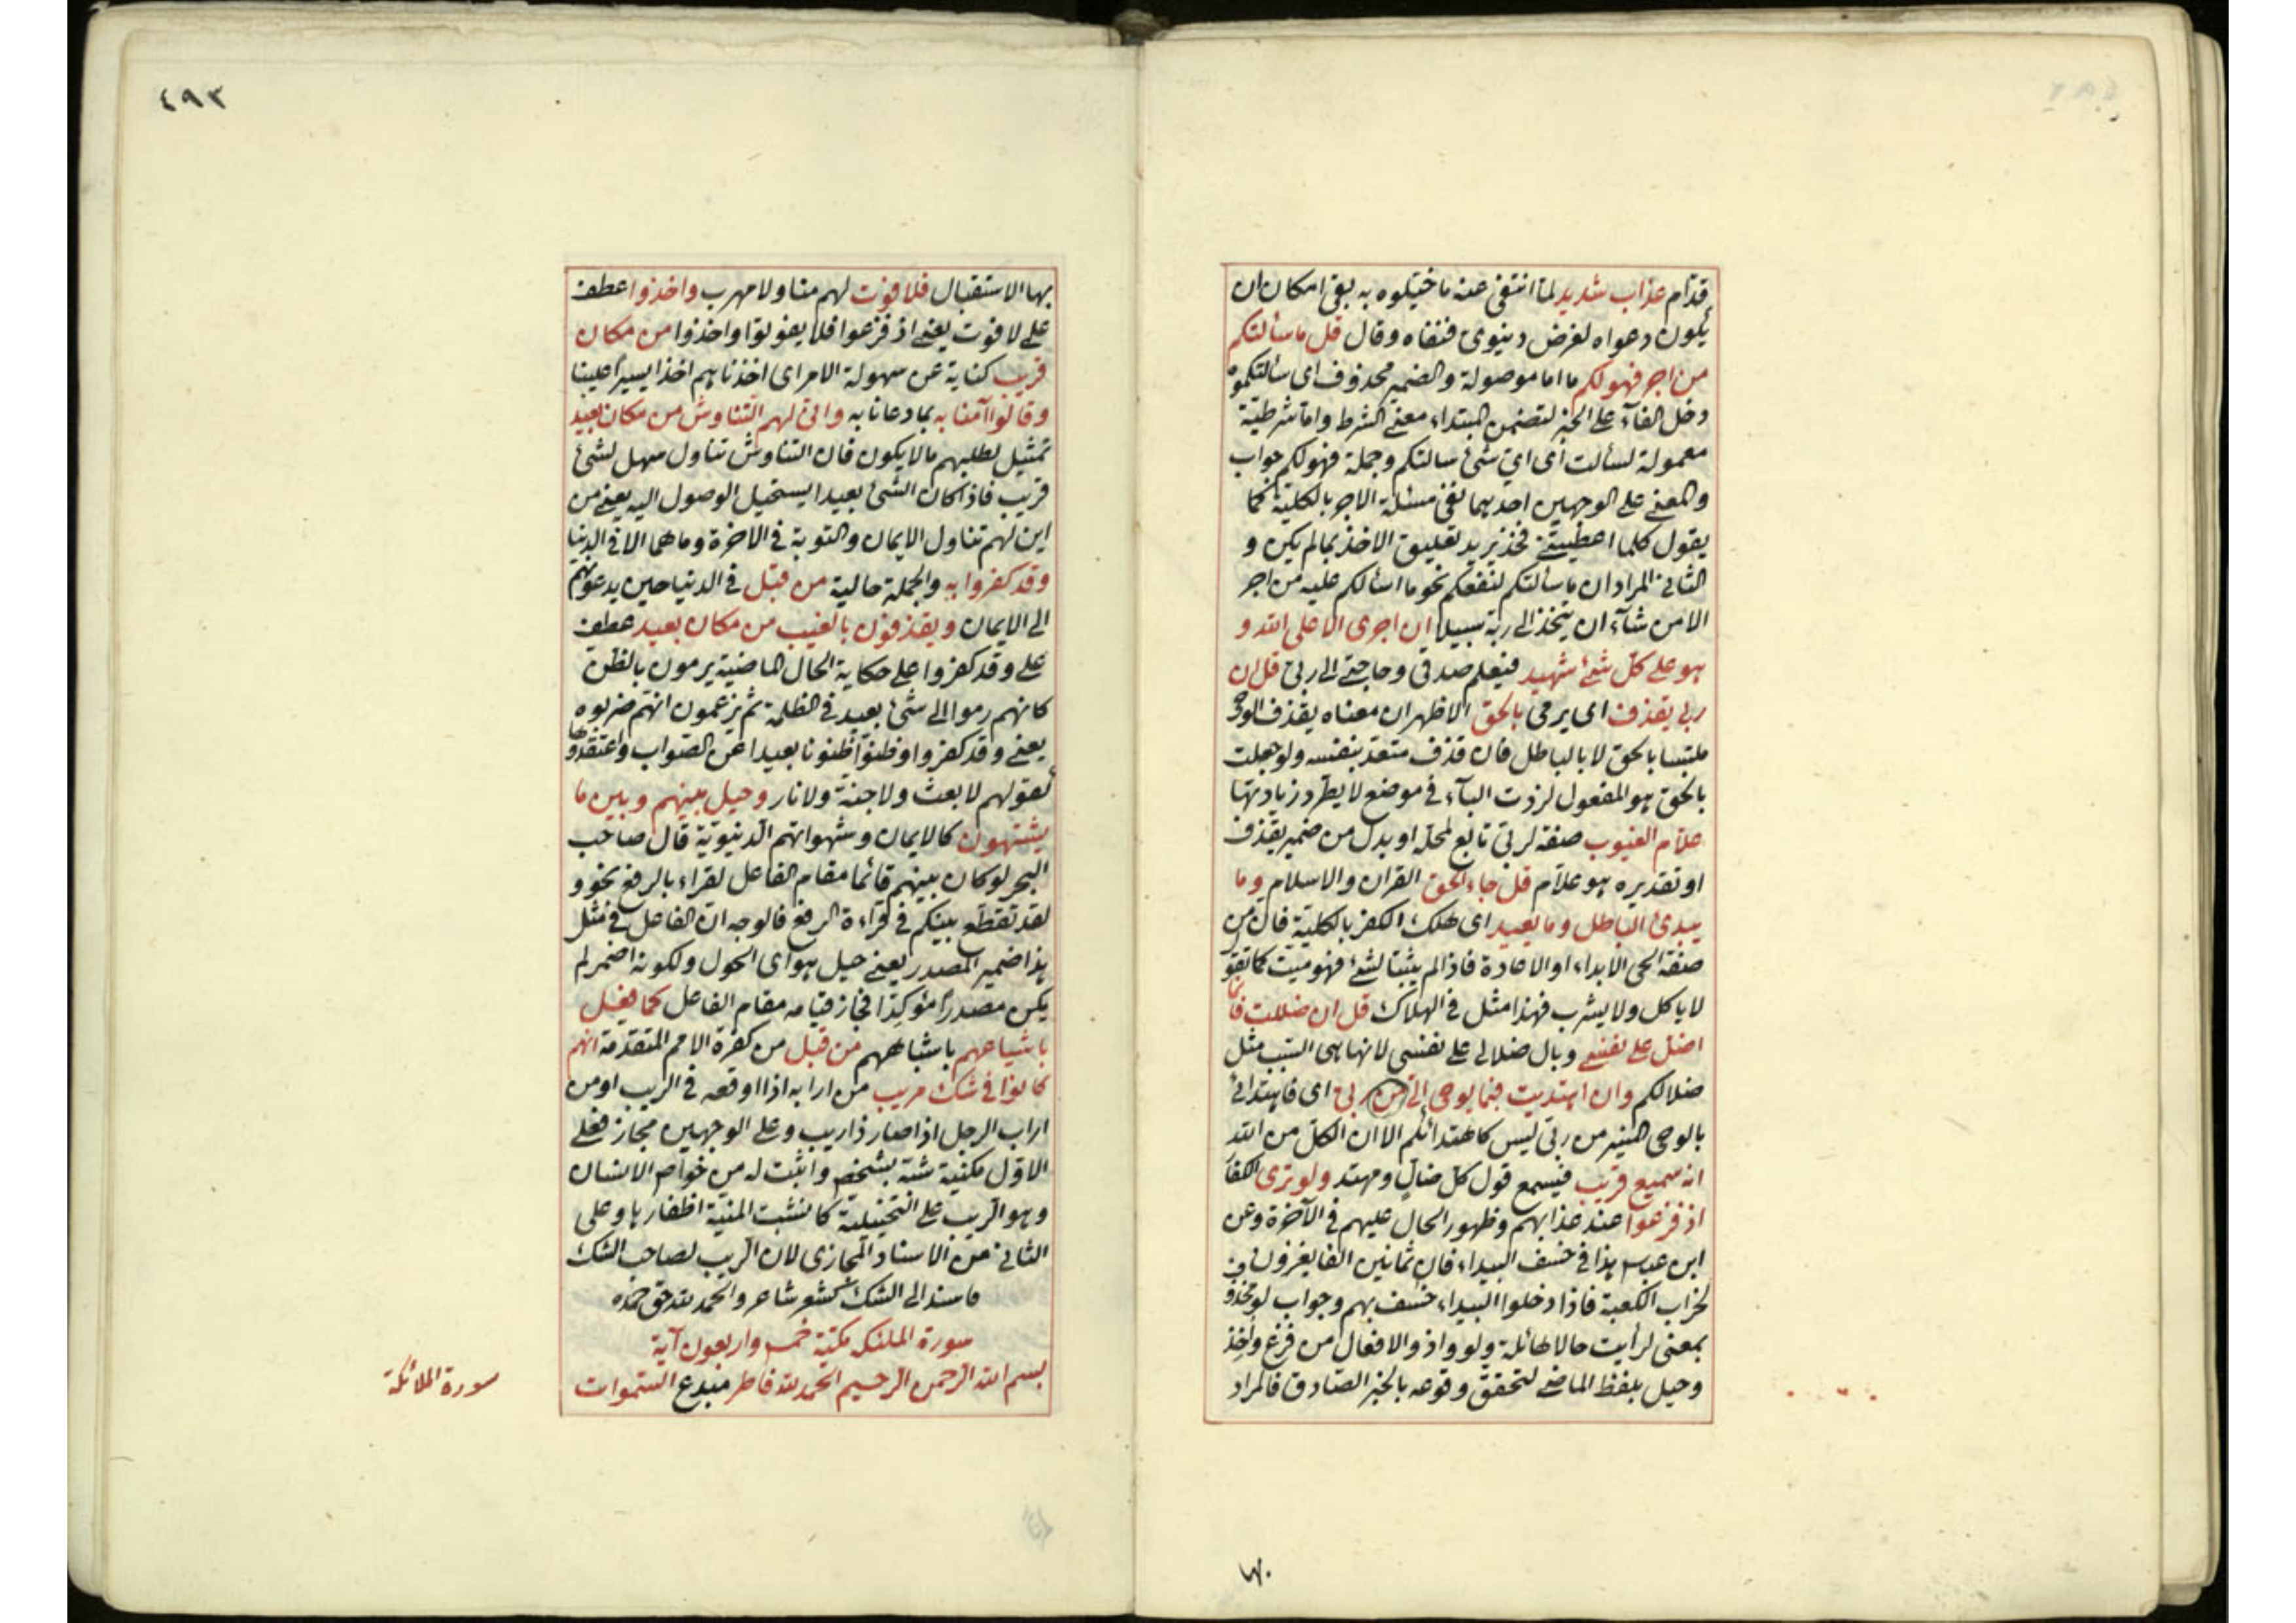 قدّام عذاب شديد لما انتفى عنه ما خيلوه به بقي امكان ان
يكون دعواه لغرض دنيوى فنفاه وقال قل ما سألتكم
من اجر فهو لكم ما اما موصولة والضمير محذوف اى سألتكموه
دخل الفآء على الخبر لتضمن المبتداء معنى الشرط واما شرطيّة
معمولة لسألت اى اىّ شئ سالتكم وجملة فهو لكم جواب
والمعنى على الوجهين احدهما نفى مسئلة الاجر بالكلية كما
يقول كلما اعطيتنى فخذ يريد تعليق الاخذ بما لم يكن و
الثانى المراد ان ما سألتكم لنفعكم نحو ما اسألكم عليه من اجر
الا من شآء ان يتخذ الى ربه سبيلا ان اجرى الا على الله و
هو على كل شئ شهيد فيعلم صدقى وحاجتى الى ربى قل ان
ربى يقذف اى يرمى بالحق الاظهر ان معناه يقذف الوحى
ملتبسا بالحق لا بالباطل فان قذف متعد بنفسه ولو جعلت
بالحق هو المفعول لزدت البآء فى موضع لا يطّرد زيادتها
علّام الغيوب صفة لربى تابع لمحله او بدل من ضمير يقذف
او تقديره هو علّام قل جاء الحق القران والاسلام وما
يبدئ الباطل وما يعيد اى هلك الكفر بالكلية فان من
صفة الحى الابداء او الاعادة فاذا لم يثبتا لشئ فهو ميت كما تقو
لا ياكل ولا يشرب فهذا مثل فى الهلاك قل ان ضللت فانما
اضل على نفسى وبال ضلالى على نفسى لانها هى السّبب مثل
ضلالكم وان اهتديت فبما يوحى الىّ من ربى اى فاهتدائى
بالوحى المنير من ربى ليس كاهتدائكم الا ان الكل من الله
انه سميع قريب فيسمع قول كل ضالّ ومهتد ولو ترى الكفا
اذ فزعوا عند عذابهم وظهور الحال عليهم فى الآخرة وعن
ابن عباس هذا فى خسف البيداء فان ثمانين الفا يغزون
لخراب الكعبة فاذا دخلوا البيداء خسف بهم وجواب لو محذو
بمعنى لرأيت حالا هائلة ولو واذ والافعال من فزع واخذ
وحيل بلفظ الماضى لتحقق وقوعه بالخبر الصّادق فالمراد
بها الاستقبال فلا فوت لهم منا ولا مهرب واخذوا عطف
على لا فوت يعنى اذ فزعوا فلا يفوتوا واخذوا من مكان
قريب كناية عن سهولة الامر اى اخذناهم اخذا يسيرا علينا
وقالوا آمنا به بما دعانا به وانّى لهم التّناوش من مكان بعيد
تمثيل لطلبهم ما لا يكون فان التناوش تناول سهل لشئ
قريب فاذا كان الشئ بعيدا يستحيل الوصول اليه يعنى من
اين لهم تناول الايمان والتوبة فى الاخرة وما هما الا فى الدنيا
وقد كفروا به والجملة حالية من قبل فى الدنيا حين يدعونهم
الى الايمان ويقذفون بالغيب من مكان بعيد عطف
على وقد كفروا على حكاية الحال الماضية يرمون بالظن
كانهم رموا الى شئ بعيد فى الظلمة ثم يزعمون انهم ضربوه
يعنى وقد كفروا وظنوا ظنونا بعيدا عن الصّواب واعتقدوها
لقولهم لا بعث ولا جنة ولا نار وحيل بينهم وبين ما
يشتهون كالايمان وشهواتهم الدّنيويّة قال صاحب
البحر لو كان بينهم قائما مقام الفاعل لقراء بالرفع نحو و
لقد تقطّع بينكم فى قراءة الرفع فالوجه ان الفاعل فى مثل
هذا ضمير المصدر يعنى حيل هو اى الحول ولكونه اضمر لم
يكن مصدرا مؤكدا فجاز قيامه مقام الفاعل كما فعل
باشياعهم باشباههم من قبل من كفرة الامم المتقدّمة انهم
كانوا فى شك مريب من ارابه اذا اوقعه فى الريب او من
اراب الرجل اذا صار ذا ريب وعلى الوجهين مجاز فعلى
الاوّل مكنية شبه بشخص واثبت له من خواص الانسان
وهو الرّيب على التخييلية كانشبت المنيّة اظفارها وعلى
الثانى من الاسناد المجازى لان الرّيب لصاحب الشك
فاسند الى الشك كشعر شاعر والحمد لله حق حمده
سورة الملئكة مكيّة خمس واربعون آية
بسم الله الرّحمن الرّحيم الحمد لله فاطر مبدع السّموات
سورة الملائكة
٤٩٣